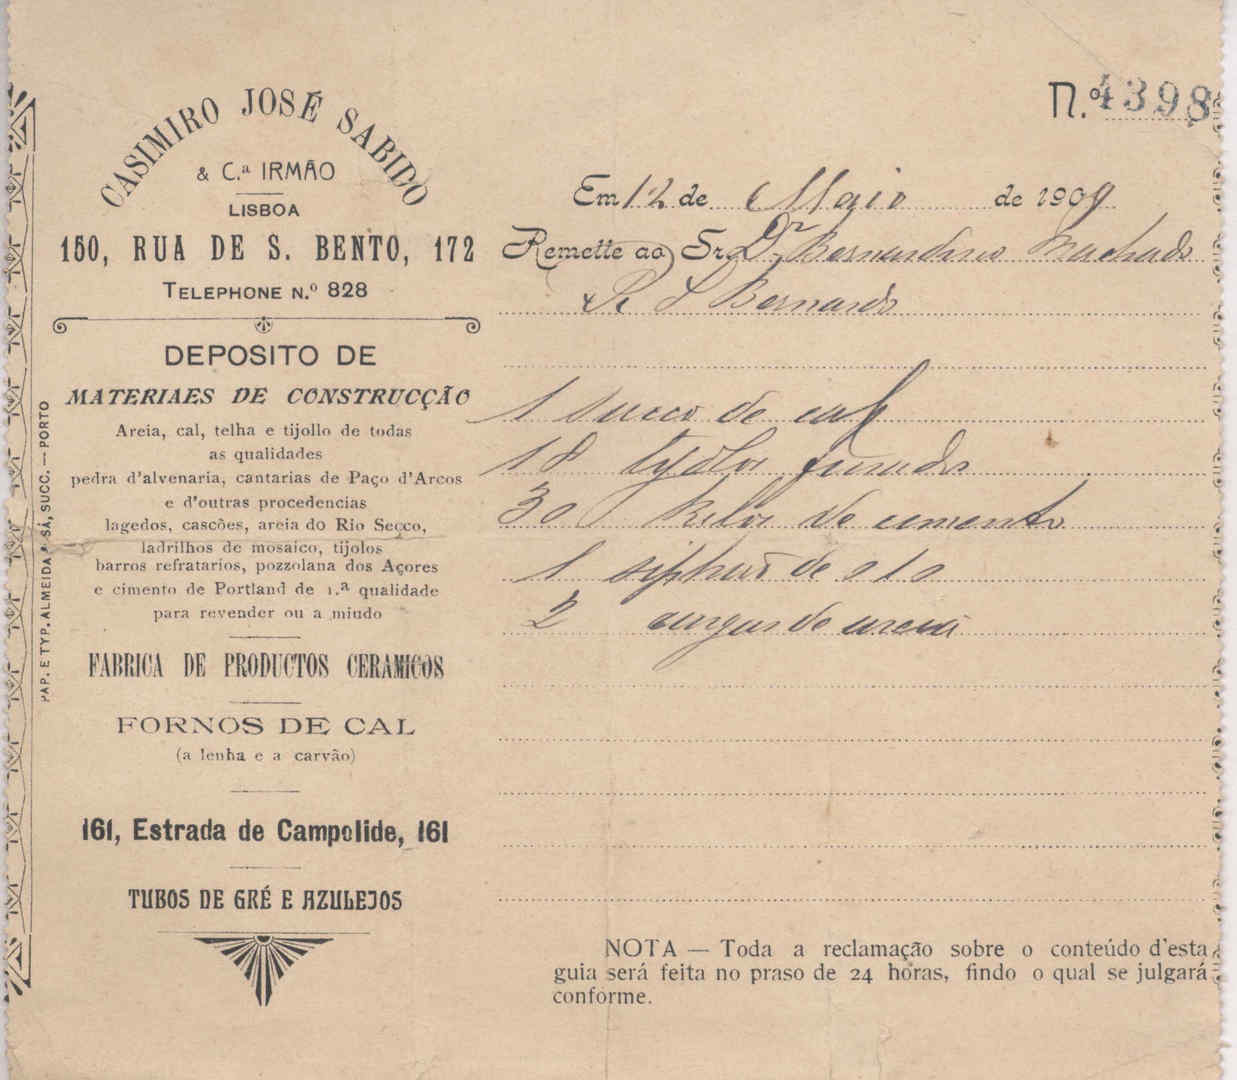 CASIMIRO JOSÉ SABIDO
& C.ª IRMÃO
LISBOA
150, RUA DE S. BENTO, 172
TELEPHONE N.º 828
DEPOSITO DE
MATERIAES DE CONSTRUCÇÃO
Areia, cal, telha e tijollo de todas
as qualidades
pedra d'alvenaria, cantarias de Paço d'Arcos
e d'outras procedencias
lagedos, cascões, areia do Rio Secco,
ladrilhos de mosaico, tijolos
barros refratarios, pozzolana dos Açores
e cimento de Portland de 1.ª qualidade
para revender ou a miudo
FABRICA DE PRODUCTOS CERAMICOS
FORNOS DE CAL
(a lenha e a carvão)
161, Estrada de Campolide, 161
TUBOS DE GRÉ E AZULEJOS
PAP. E TYP. ALMEIDA & SÁ, SUCC. — PORTO
N.º 4398
Em 12 de Maio de 1909
Remette ao Sr. Dr Bernardino Machado
R S Bernardo
1 sacco de cal
18 tijolos furados
30 kilos de cimento
1 siphão de 010
2 cargas de areia
NOTA — Toda a reclamação sobre o conteúdo d'esta
guia será feita no praso de 24 horas, findo o qual se julgará
conforme.